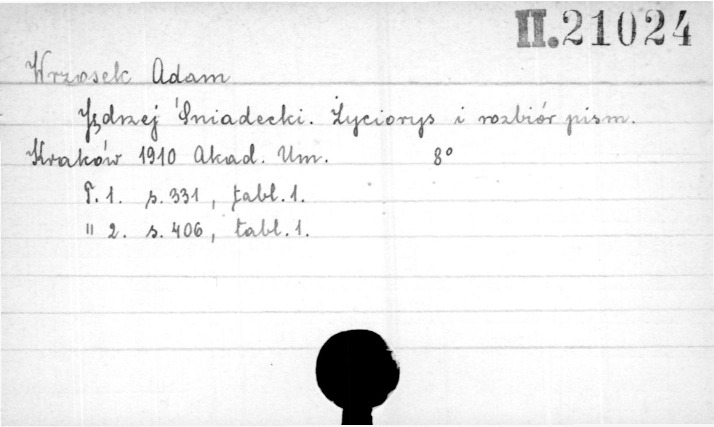 II.21024
Wrzosek Adam
Jędrzej Śniadecki. Życiorys i rozbiór pism.
Kraków 1910 Akad. Um. 8°
T. 1. s. 331, tabl. 1.
" 2. s. 406, tabl. 1.